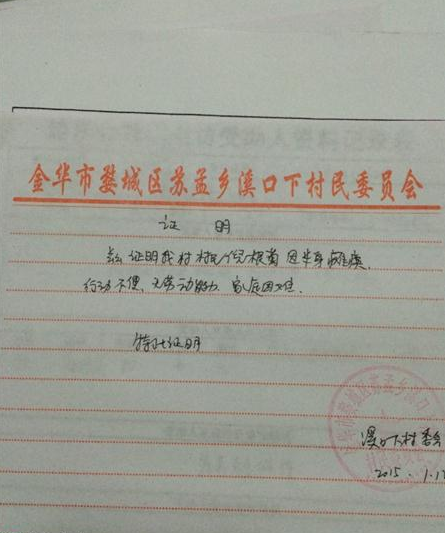 金华市婺城区苏孟乡溪口下村民委员会
证 明
兹证明我村村民倪根菊 因半身瘫痪,
行动不便, 无劳动能力. 家庭困难.
特此证明
溪口下村委会
2015.1.1